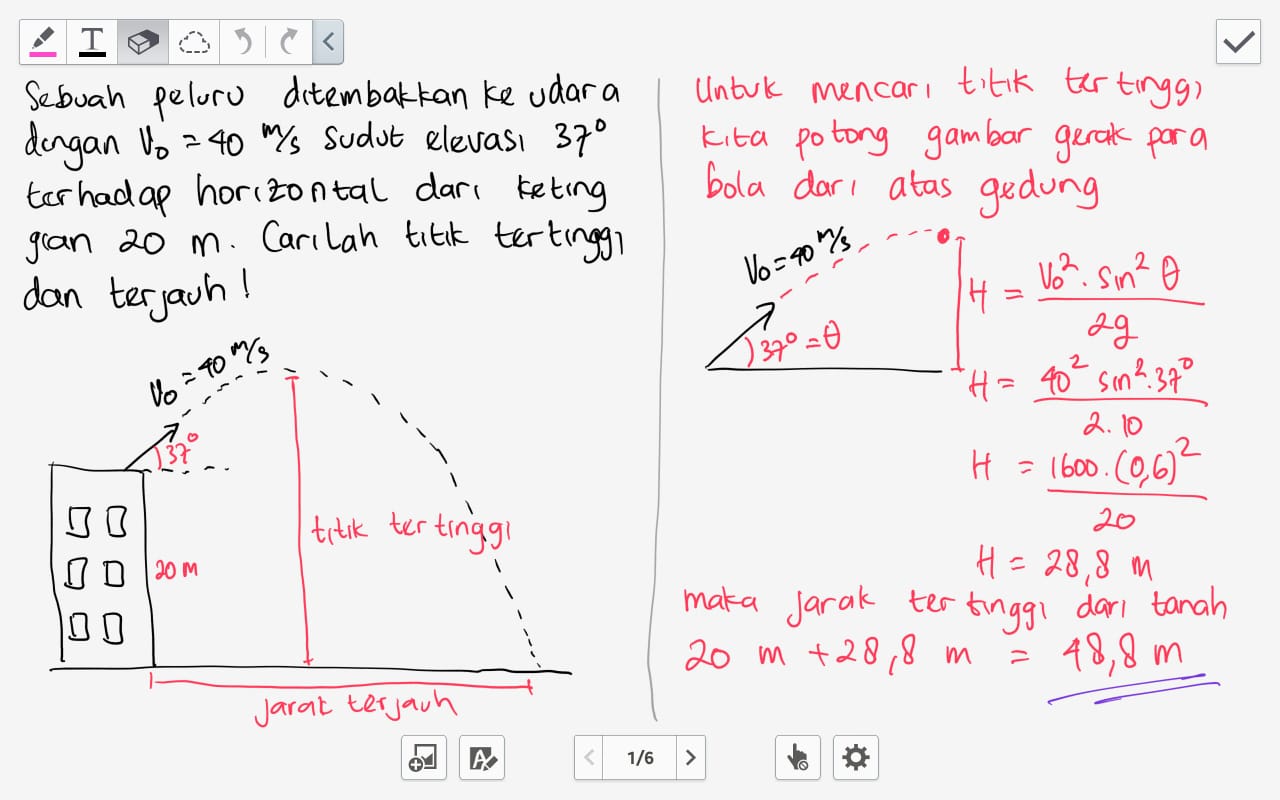 Sebuah peluru ditembakkan ke udara
dengan V₀ = 40 m/s sudut elevasi 37°
terhadap horizontal dari keting
gian 20 m. Carilah titik tertinggi
dan terjauh!
V₀ = 40 m/s
37°
20 m
titik tertinggi
jarak terjauh
Untuk mencari titik tertinggi
kita potong gambar gerak para
bola dari atas gedung
V₀ = 40 m/s
37° = θ
H = V₀². sin² θ / 2g
H = 40² sin². 37° / 2. 10
H = 1600. (0,6)² / 20
H = 28,8 m
maka jarak tertinggi dari tanah
20 m + 28,8 m = 48,8 m
1/6